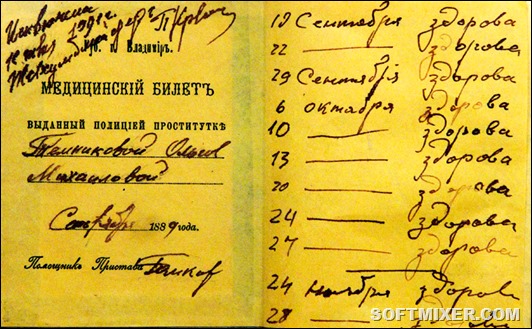 Исключена
1891 г.
Гор. г. Владимір.
МЕДИЦИНСКІЙ БИЛЕТЪ
ВЫДАННЫЙ ПОЛИЦІЕЙ ПРОСТИТУТКѢ
Темниковой Ольгой
Михаиловой
Сентября 1889 года.
Помощник Пристава
19 Сентября здорова
22 — здорова
29 Сентября здорова
6 октября здорова
10 — здорова
13 — здорова
20 — здорова
24 — здорова
27 — здорова
24 ноября здорова
28 —
SOFTMIXER.COM